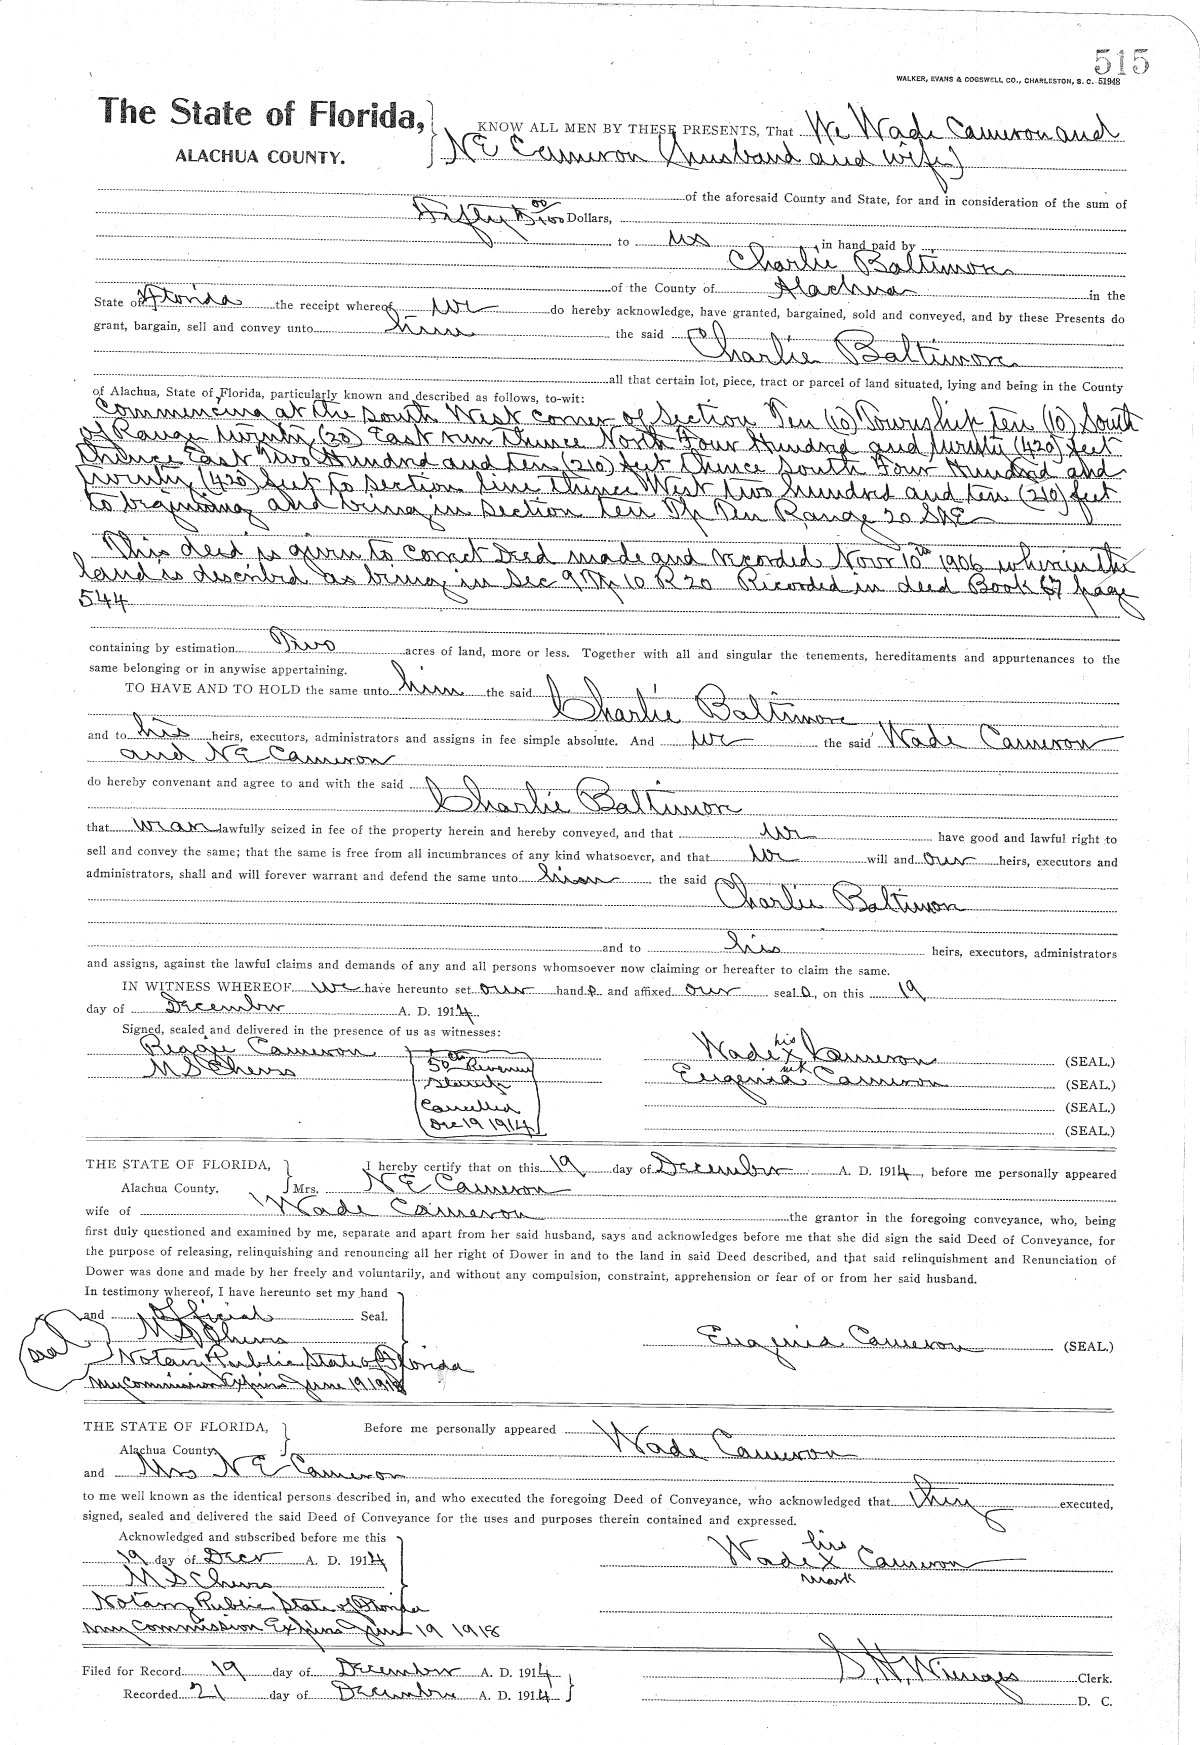 515
WALKER, EVANS & COGSWELL CO., CHARLESTON, S. C. 51948
The State of Florida,
ALACHUA COUNTY.
KNOW ALL MEN BY THESE PRESENTS, That We Wade Cameron and
N E Cameron (husband and wife)
of the aforesaid County and State, for and in consideration of the sum of
Fifty Two 00 Dollars,
to us in hand paid by
Charlie Baltimore
of the County of Alachua in the
State of Florida the receipt whereof we do hereby acknowledge, have granted, bargained, sold and conveyed, and by these Presents do
grant, bargain, sell and convey unto him the said Charlie Baltimore
all that certain lot, piece, tract or parcel of land situated, lying and being in the County
of Alachua, State of Florida, particularly known and described as follows, to-wit:
Commencing at the South West corner of Section Ten (10) Township ten (10) South
of Range twenty (20) East run thence North Four Hundred and twenty (420) feet
thence East Two Hundred and ten (210) feet thence South Four Hundred and
twenty (420) feet to section line thence West two hundred and ten (210) feet
to beginning and being in section ten Tp Ten Range 20 S&E
This deed is given to correct Deed made and recorded Novr 10th 1906 wherein the
land is described as being in Sec 9 Tp 10 R 20 Recorded in deed Book 67 page
544
containing by estimation Two acres of land, more or less. Together with all and singular the tenements, hereditaments and appurtenances to the
same belonging or in anywise appertaining.
TO HAVE AND TO HOLD the same unto him the said Charlie Baltimore
and to his heirs, executors, administrators and assigns in fee simple absolute. And we the said Wade Cameron
and N E Cameron
do hereby convenant and agree to and with the said Charlie Baltimore
that we are lawfully seized in fee of the property herein and hereby conveyed, and that we have good and lawful right to
sell and convey the same; that the same is free from all incumbrances of any kind whatsoever, and that we will and our heirs, executors and
administrators, shall and will forever warrant and defend the same unto him the said
Charlie Baltimore
and to his heirs, executors, administrators
and assigns, against the lawful claims and demands of any and all persons whomsoever now claiming or hereafter to claim the same.
IN WITNESS WHEREOF we have hereunto set our hand s and affixed our seal s, on this 19
day of December A. D. 1914.
Signed, sealed and delivered in the presence of us as witnesses:
Reggie Cameron
M S Cheves
50 cts Revenue
Stamp
Cancelled
Dec 19 1914
Wade his x mk Cameron (SEAL.)
Eugenia Cameron (SEAL.)
(SEAL.)
(SEAL.)
THE STATE OF FLORIDA,
Alachua County.
I hereby certify that on this 19 day of December A. D. 1914, before me personally appeared
Mrs. N E Cameron
wife of Wade Cameron the grantor in the foregoing conveyance, who, being
first duly questioned and examined by me, separate and apart from her said husband, says and acknowledges before me that she did sign the said Deed of Conveyance, for
the purpose of releasing, relinquishing and renouncing all her right of Dower in and to the land in said Deed described, and that said relinquishment and Renunciation of
Dower was done and made by her freely and voluntarily, and without any compulsion, constraint, apprehension or fear of or from her said husband.
In testimony whereof, I have hereunto set my hand
and official Seal.
M S Cheves
Seal
Notary Public State of Florida
My Commission Expires June 19 1918
Eugenia Cameron (SEAL.)
THE STATE OF FLORIDA,
Alachua County.
Before me personally appeared Wade Cameron
and Mrs N E Cameron
to me well known as the identical persons described in, and who executed the foregoing Deed of Conveyance, who acknowledged that they executed,
signed, sealed and delivered the said Deed of Conveyance for the uses and purposes therein contained and expressed.
Acknowledged and subscribed before me this
19 day of Decr A. D. 1914
M S Cheves
Notary Public State of Florida
My Commission Expires June 19 1918
Wade his x mark Cameron
Filed for Record 19 day of December A. D. 1914
Recorded 21 day of December A. D. 1914
S. H. Wienges Clerk.
D. C.